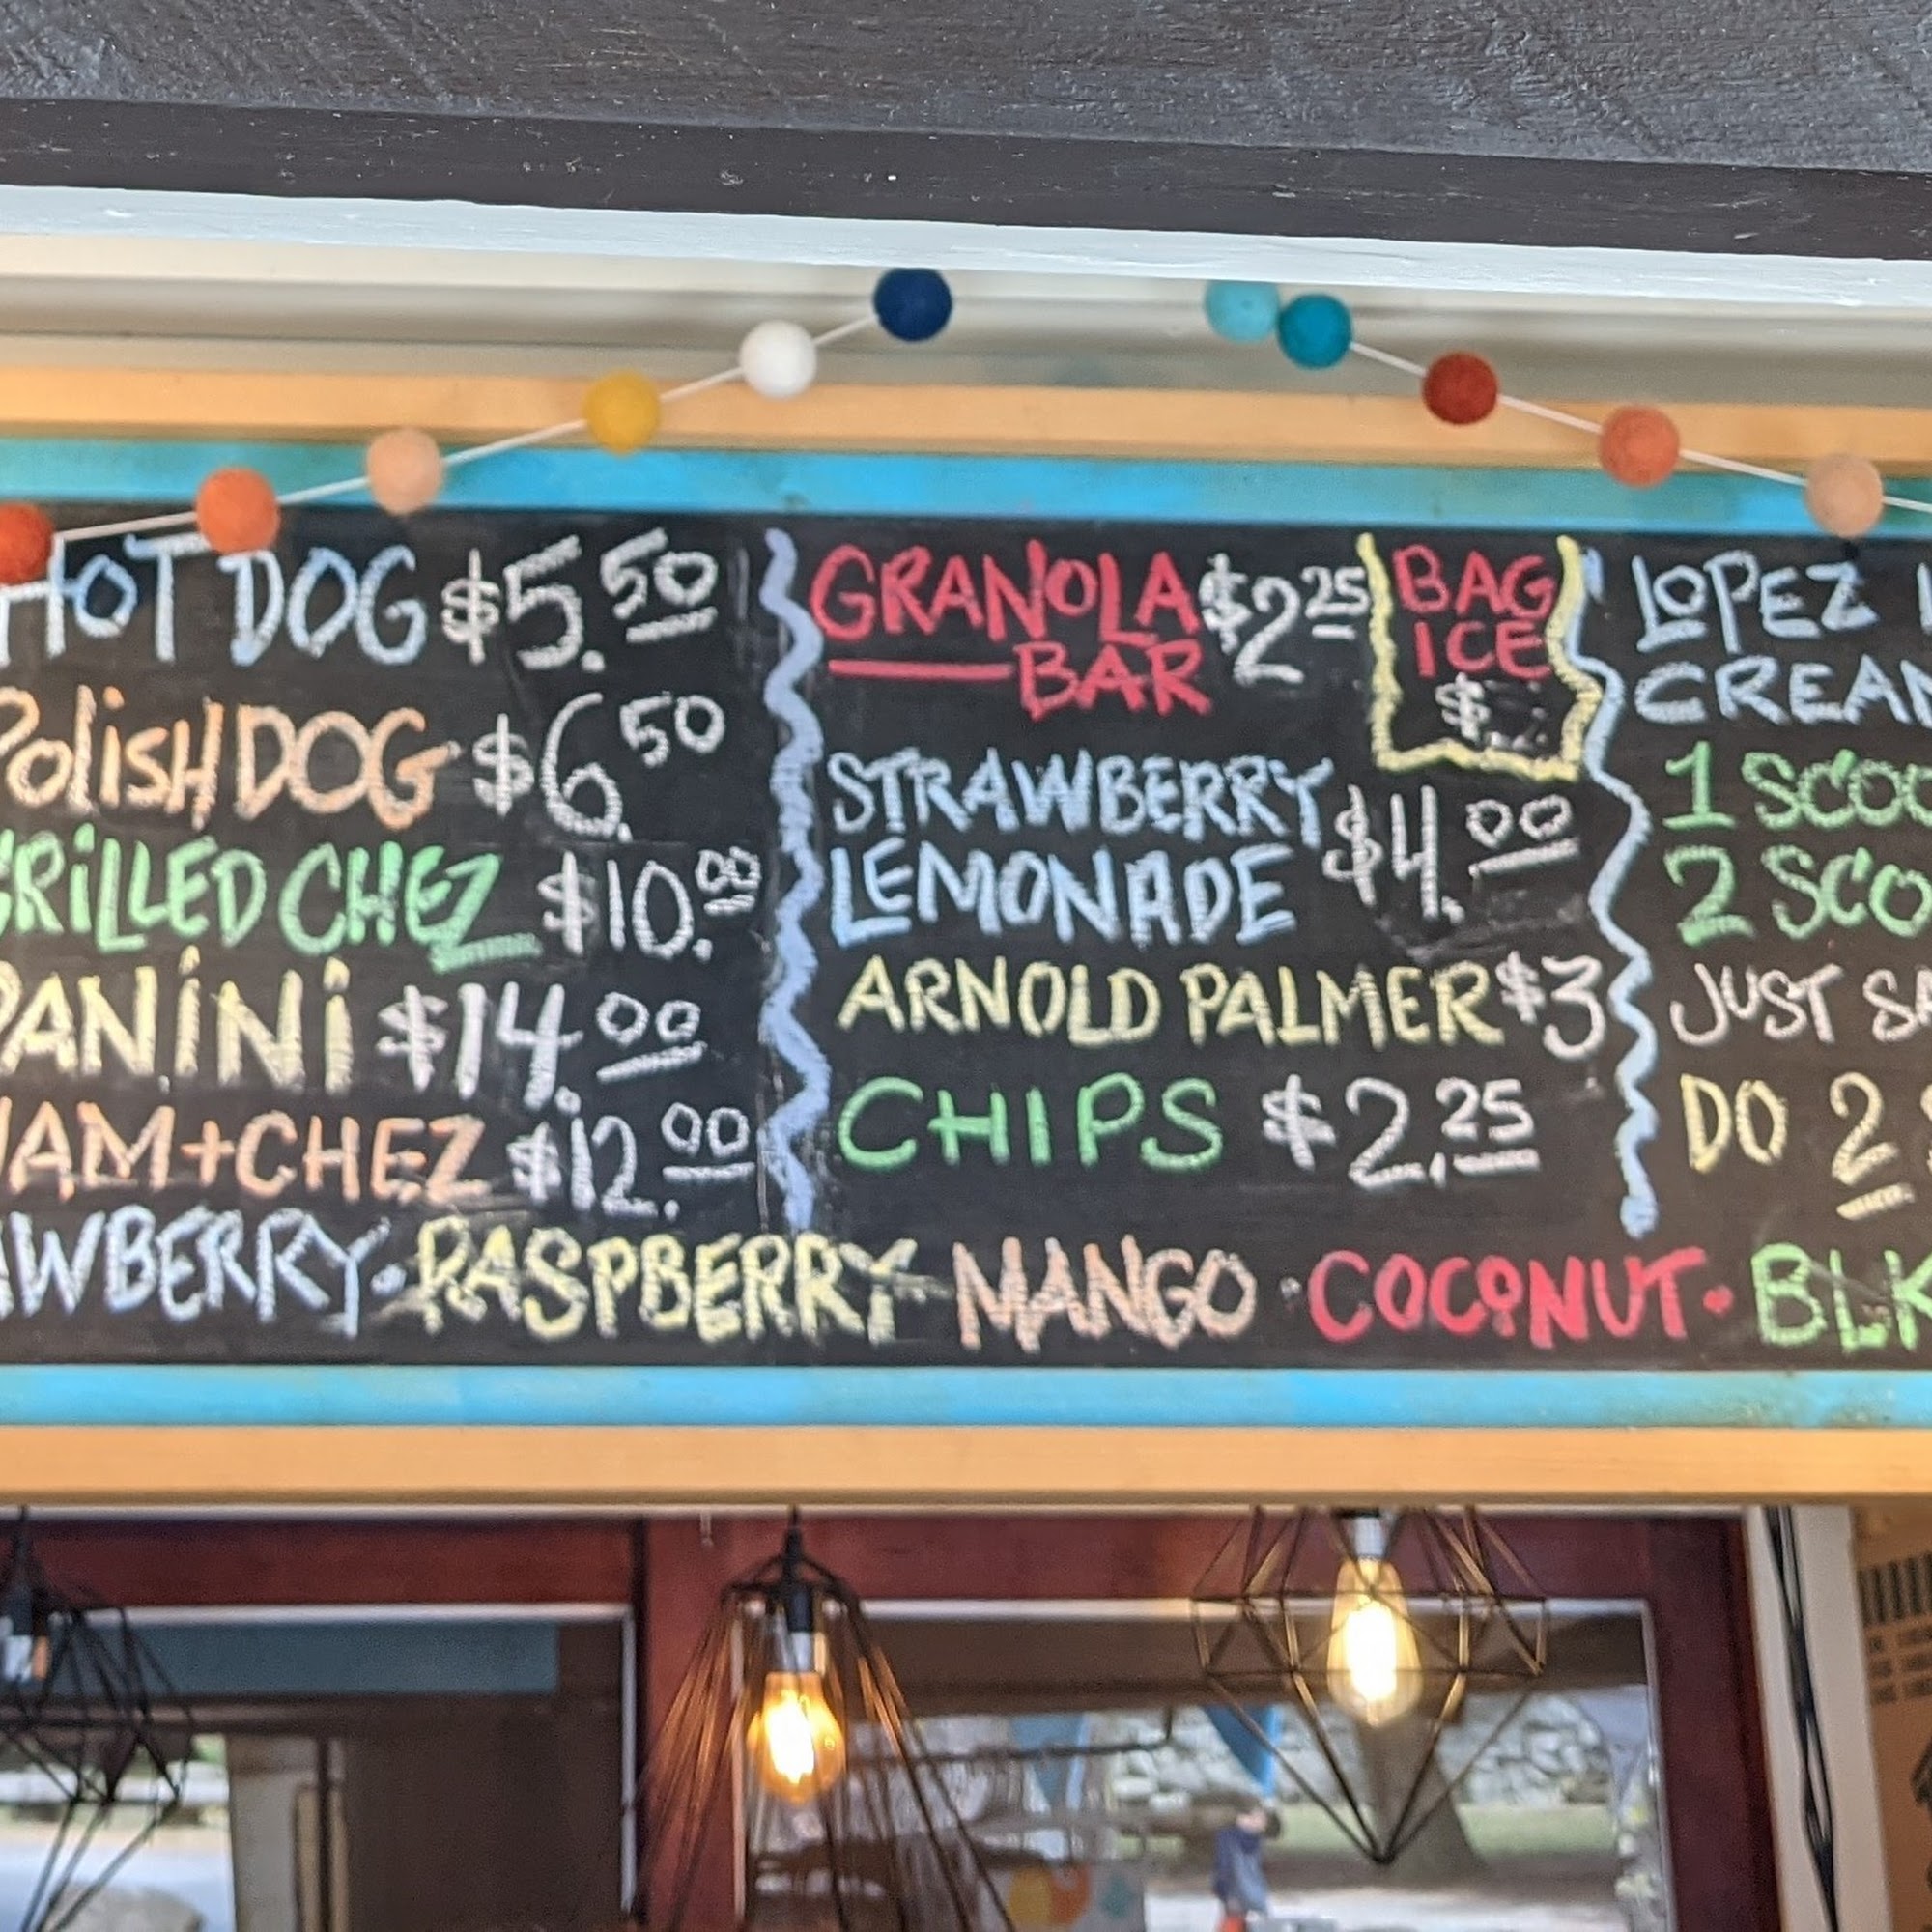 HOT DOG $5.50
POLISH DOG $6.50
GRILLED CHEZ $10.00
PANINI $14.00
HAM+CHEZ $12.00
GRANOLA BAR $2.25
BAG
ICE
$
STRAWBERRY
LEMONADE $4.00
ARNOLD PALMER $3
CHIPS $2.25
LOPEZ
CREAM
1 SCOO
2 SCO
JUST SA
DO 2
AWBERRY · RASPBERRY MANGO · COCONUT · BLK